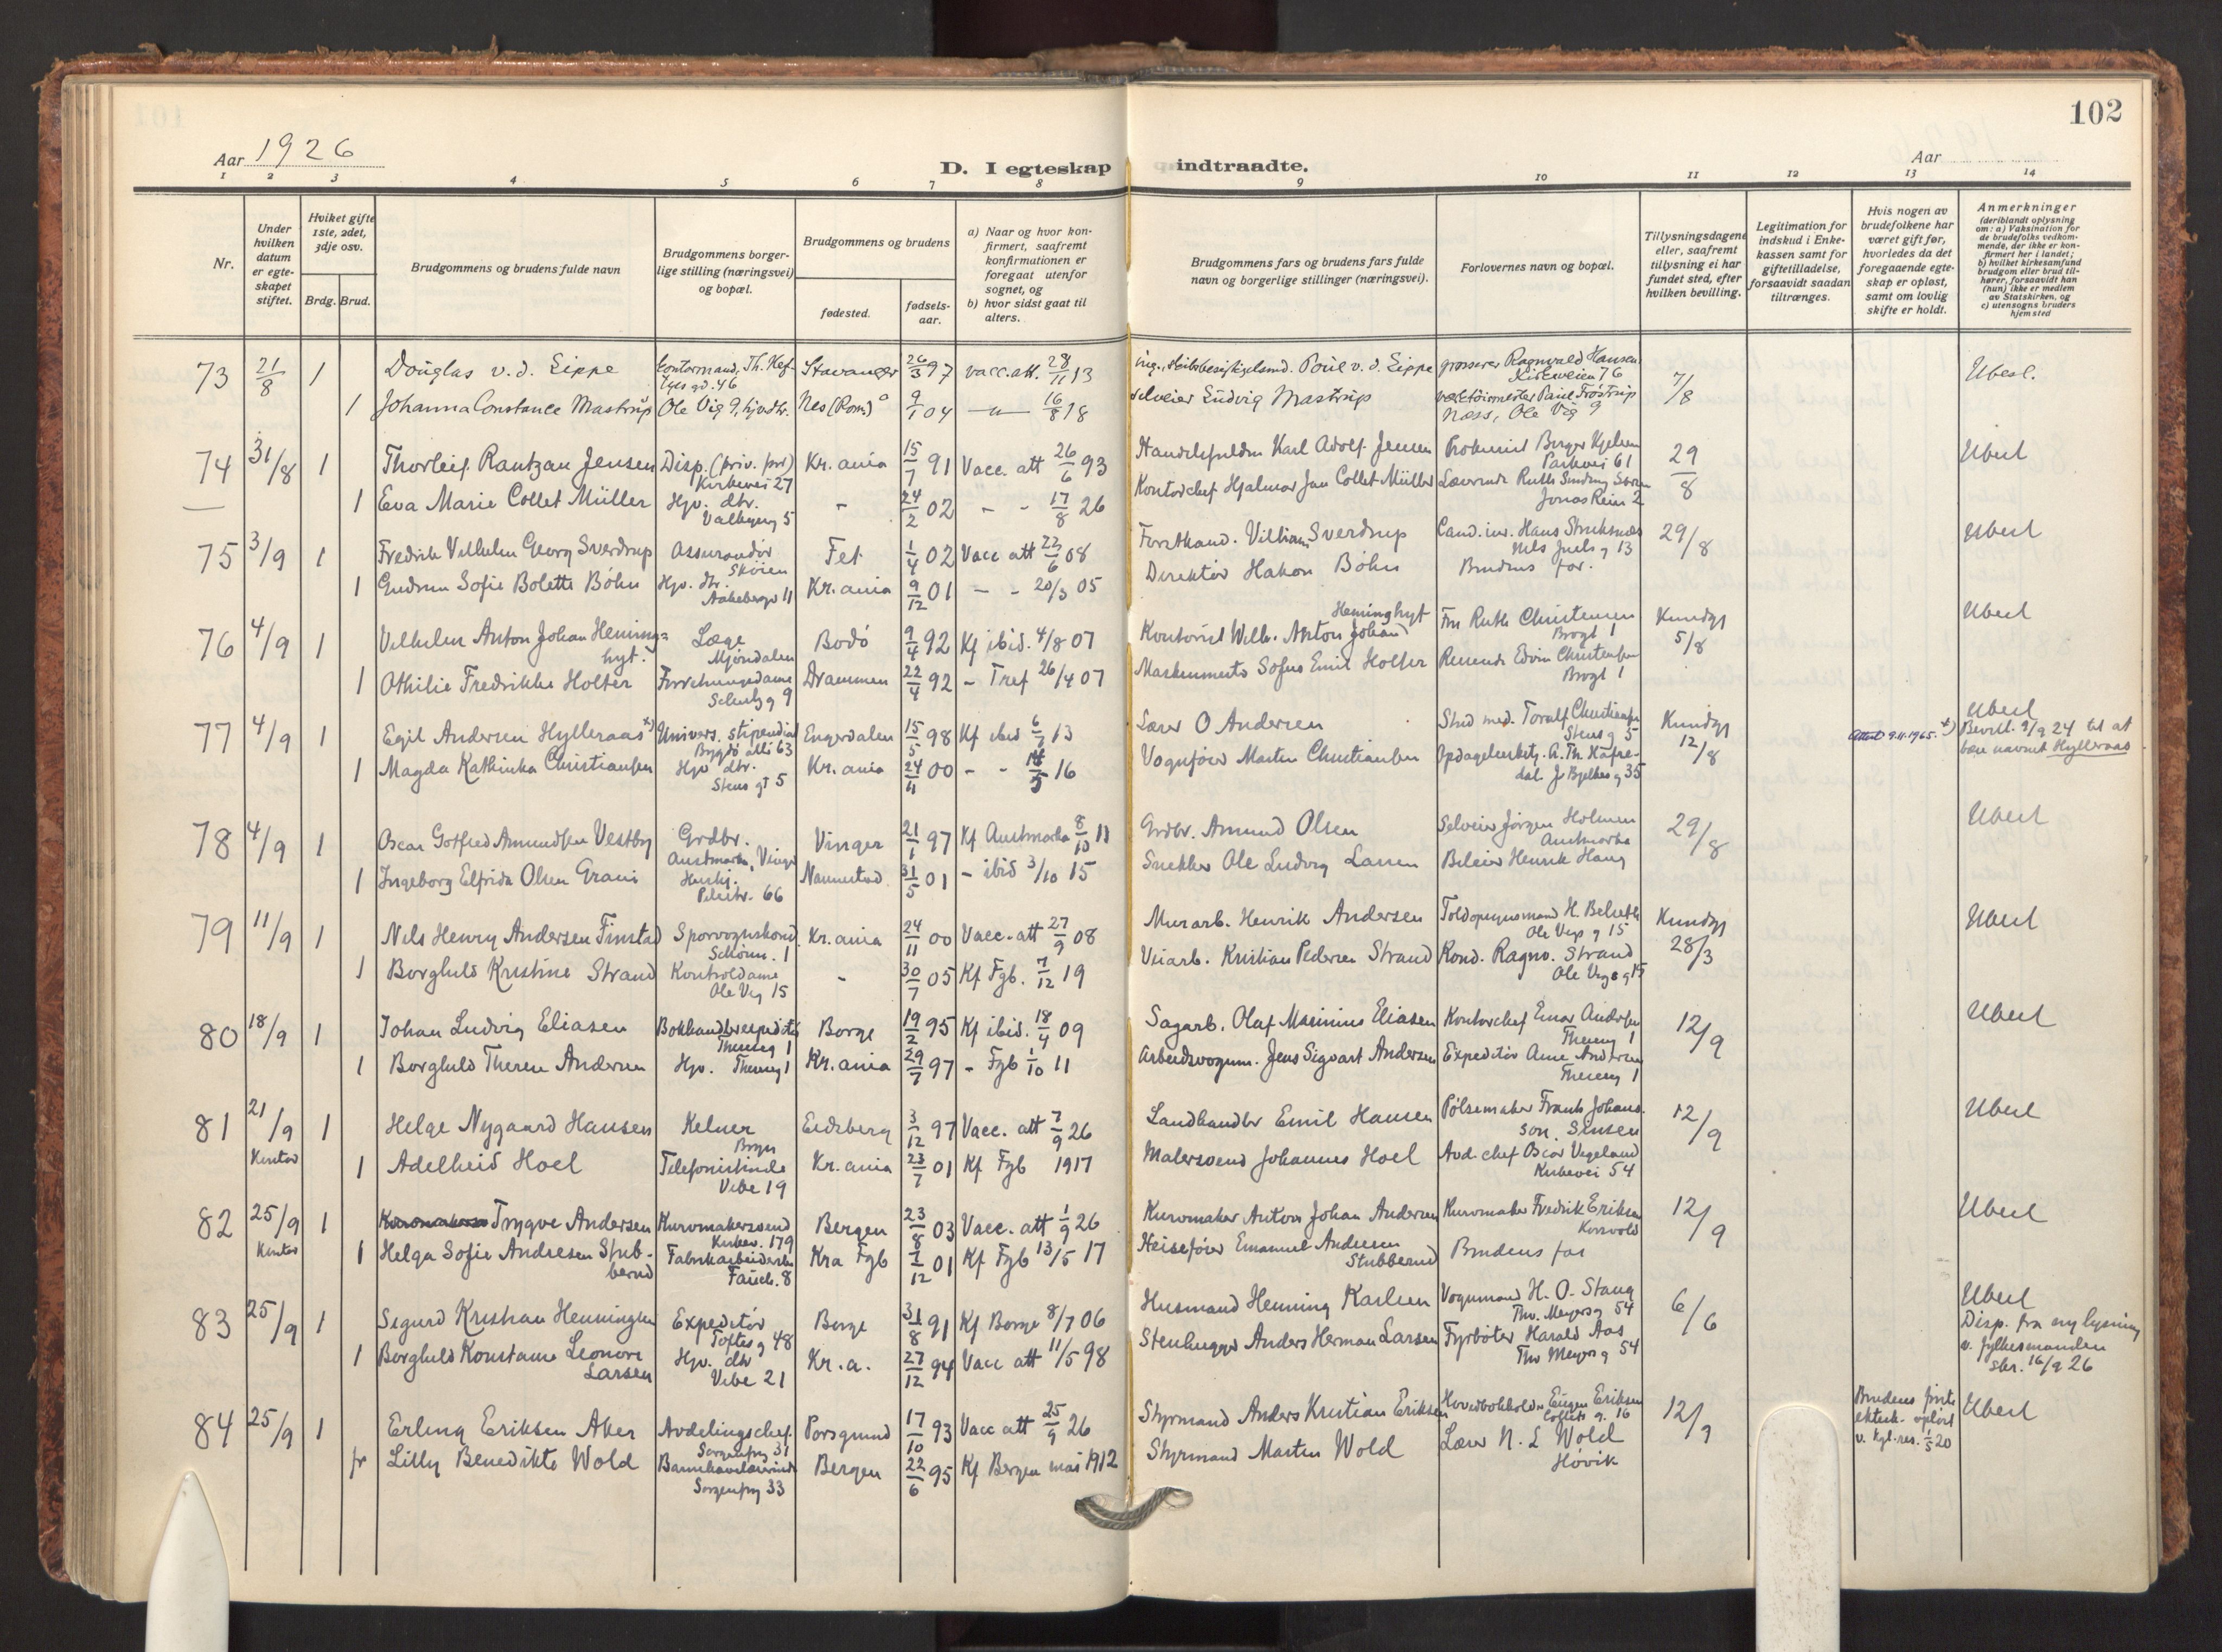 102
Aar 1926
D. I egteskap indtraadte.
Aar
1 2 3 4 5 6 7 8 9 10 11 12 13 14
Nr.
Under hvilken datum er egteskapet stiftet.
Hviket gifte 1ste, 2det, 3dje osv.
Brdg. Brud.
Brudgommens og brudens fulde navn
Brudgommens borgerlige stilling (næringsvei) og bopæl.
Brudgommens og brudens
fødested.
fødselsaar.
a) Naar og hvor konfirmert, saafremt konfirmationen er foregaat utenfor sognet, og
b) hvor sidst gaat til alters.
Brudgommens fars og brudens fars fulde navn og borgerlige stillinger (næringsvei).
Forlovernes navn og bopæl.
Tillysningsdagene eller, saafremt tillysning ei har fundet sted, efter hvilken bevilling.
Legitimation for indskud i Enkekassen samt for giftetilladelse, forsaavidt saadan tiltrænges.
Hvis nogen av brudefolkene har været gift før, hvorledes da det foregaaende egteskap er opløst, samt om lovlig skifte er holdt.
Anmerkninger
(deriblandt oplysning om: a) Vaksination for de brudefolks vedkommende, der ikke er konfirmert her i landet; b) hvilket kirkesamfund brudgom eller brud tilhører, forsaavidt han (hun) ikke er medlem av Statskirken, og c) utensogns bruders hjemsted
73 21/8 1 Douglas v. d. Lippe Stavanger 26/3 97 vacc. att. 28/11 13 Poul v. d. Lippe grosserer Ragnvald Hansen Kirkeveien 76 7/8 Ubesl.
1 Johanna Constance Mastrup Ole Vig 9, hjv. dtr. Nes (Rom.) 9/1 04 -"- 16/8 18 selveier Ludvig Mastrup Næss, Ole Vig 9
74 31/8 1 Thorleif Rantzau Jensen Disp. (priv. for) Kirkevei 27 Kr.ania 15/7 91 Vacc. att 26/6 93 Karl Adolf Jensen Parkvei 61 29/8 Ubesl
1 Eva Marie Collet Müller Hjv. dtr. - 24/2 02 - - 17/8 26 Kontorchef Hjalmar Jan Collet Müller Jonas Rein 2
75 3/9 1 Fredrik Vilhelm Georg Sverdrup Assurandør Skøien Fet 1/4 02 Vacc att 22/6 08 Forstkand. William Sverdrup Nils Juels g 13 29/8 Ubesl
1 Gudrun Sofie Bolette Bøhn Hjv. dtr. Aakebergv 11 Kr.ania 9/12 01 - - 20/3 05 Direktør Hakon Bøhn Brudens far.
76 4/9 1 Vilhelm Anton Johan Heminghyt. Læge Mjøndalen Bodø 9/4 92 Kf ibid. 4/8 07 Kontorist Wilh. Anton Johan Heminghyt Fru Ruth Christensen Brogt 1 Kundgj 5/8 Ubesl
1 Othilie Fredrikke Holter Schultz g 9 Drammen 22/4 92 - Tref 26/4 07 Sofus Emil Holter Edvin Christensen Brogt 1
77 4/9 1 Egil Andersen Hylleraas x) Univers. stipendiat Bygdø alle 63 Engerdalen 15/5 98 Kf ibid 6/7 13 Lærer O Andersen Stud med. Toralf Christiansen Stens g 5 Kundgj 12/8 Attest 9.11.1965. Ubesl
x) Bevill. 9/9 24 til at bære navnet Hylleraas
1 Magda Kathinka Christiansen Hjv dtr. Stens gt 5 Kr.ania 24/11 00 - - 16 Vognfører Martin Christiansen J. Bjelkes g 35
78 4/9 1 Oscar Gotfred Amundsen Vestby Grdbr. Austmarka, Vinger Vinger 21/1 97 Kf Austmarka 8/10 11 Grdbr. Amund Olsen Selveier Jørgen Holmen Austmarka 29/8 Ubesl
1 Ingeborg Elfrida Olsen Grani Pilestr. 66 Nannestad 31/5 01 - ibid 3/10 15 Snekker Ole Ludvig Larsen Henrik Haug
79 11/9 1 Nils Henry Andersen Finstad Sporvognskond. Schønn. 1 Kr.ania 24/11 00 Vacc. att 27/9 08 Murarb. Henrik Andersen Toldopsynsmand H. Belseth Ole Vigs g 15 Kundgj 28/3 Ubesl
1 Borghild Kristine Strand Kontroldame Ole Vig 15 - 30/7 05 Kf Fgb. 7/12 19 Veiarb. Kristian Pedersen Strand Kond. Ragnv. Strand Ole Vigs g 15
80 18/9 1 Johan Ludvig Eliasen Thereseg 1 Borge 19/2 95 Kf ibid. 18/4 09 Sagarb. Olaf Marinius Eliasen Kontorchef Einar Andersen Thereseg 1 12/9 Ubesl
1 Borghild Therese Andersen Hjv. Thereseg 1 Kr.ania 29/7 97 - Fgb 1/10 11 Arbeidsvognm. Jens Sigvart Andersen Expeditør Arne Andersen Thereseg 1
81 21/9 Kontor 1 Helge Nygaard Hansen Kelner Bryn Eidsberg 3/12 97 Vacc. att 7/9 26 Landhandler Emil Hansen Pølsemaker Frank Johansson. Sinsen 12/9 Ubesl
1 Adelheid Hoel Telefonistinde Vibe 19 Kr.ania 23/7 01 Kf Fgb 1917 Malersvend Johannes Hoel Avd. chef Oscar Vegeland Kirkevei 54
82 25/9 Kontor 1 Trygve Andersen Kurvmakersvend Kirkev. 179 Bergen 23/8 03 Vacc. att 1/9 26 Kurvmaker Anton Johan Andersen Kurvmaker Fredrik Eriksen Korsvold 12/9 Ubesl
1 Helga Sofie Andresen Stubberud Fabrikarbeiderske Fauch. 8 Kra Fgb 7/12 01 Kf Fgb 13/5 17 Heisefører Emanuel Andresen Stubberud Brudens far
83 25/9 1 Sigurd Kristian Henningsen Expeditør Toftes g 48 Borge 31/8 91 Kf Borge 8/7 06 Husmand Henning Karlsen Vognmand H. O. Stang Thv. Meyers g 54 6/6 Ubesl
Disp. fra ny lysning v. fylkesmanden skr. 16/9 26
1 Borghild Konstanse Leonore Larsen Hjv. dtr Vibe 21 Kr.a. 27/12 94 Vacc att 11/5 98 Stenhugger Anders Herman Larsen Fyrbøter Harald Aas Thv Meyers g 54
84 25/9 1 Erling Eriksen Aker Avdelingschef. Sorgenfrig 31 Porsgrund 17/10 93 Vacc att 25/9 26 Styrmand Anders Kristian Eriksen Hovedbokholder Eugen Eriksen Colletts g. 16 12/9 Brudens første ektesk. opløst v. kgl. res. 1/5 20 Ubesl
fr Lilly Benedikte Wold Barnehavelærerinde Sorgenfrig 33 Bergen 22/6 95 Kf Bergen mai 1912 Styrmand Martin Wold Lærer N. L Wold Høvik